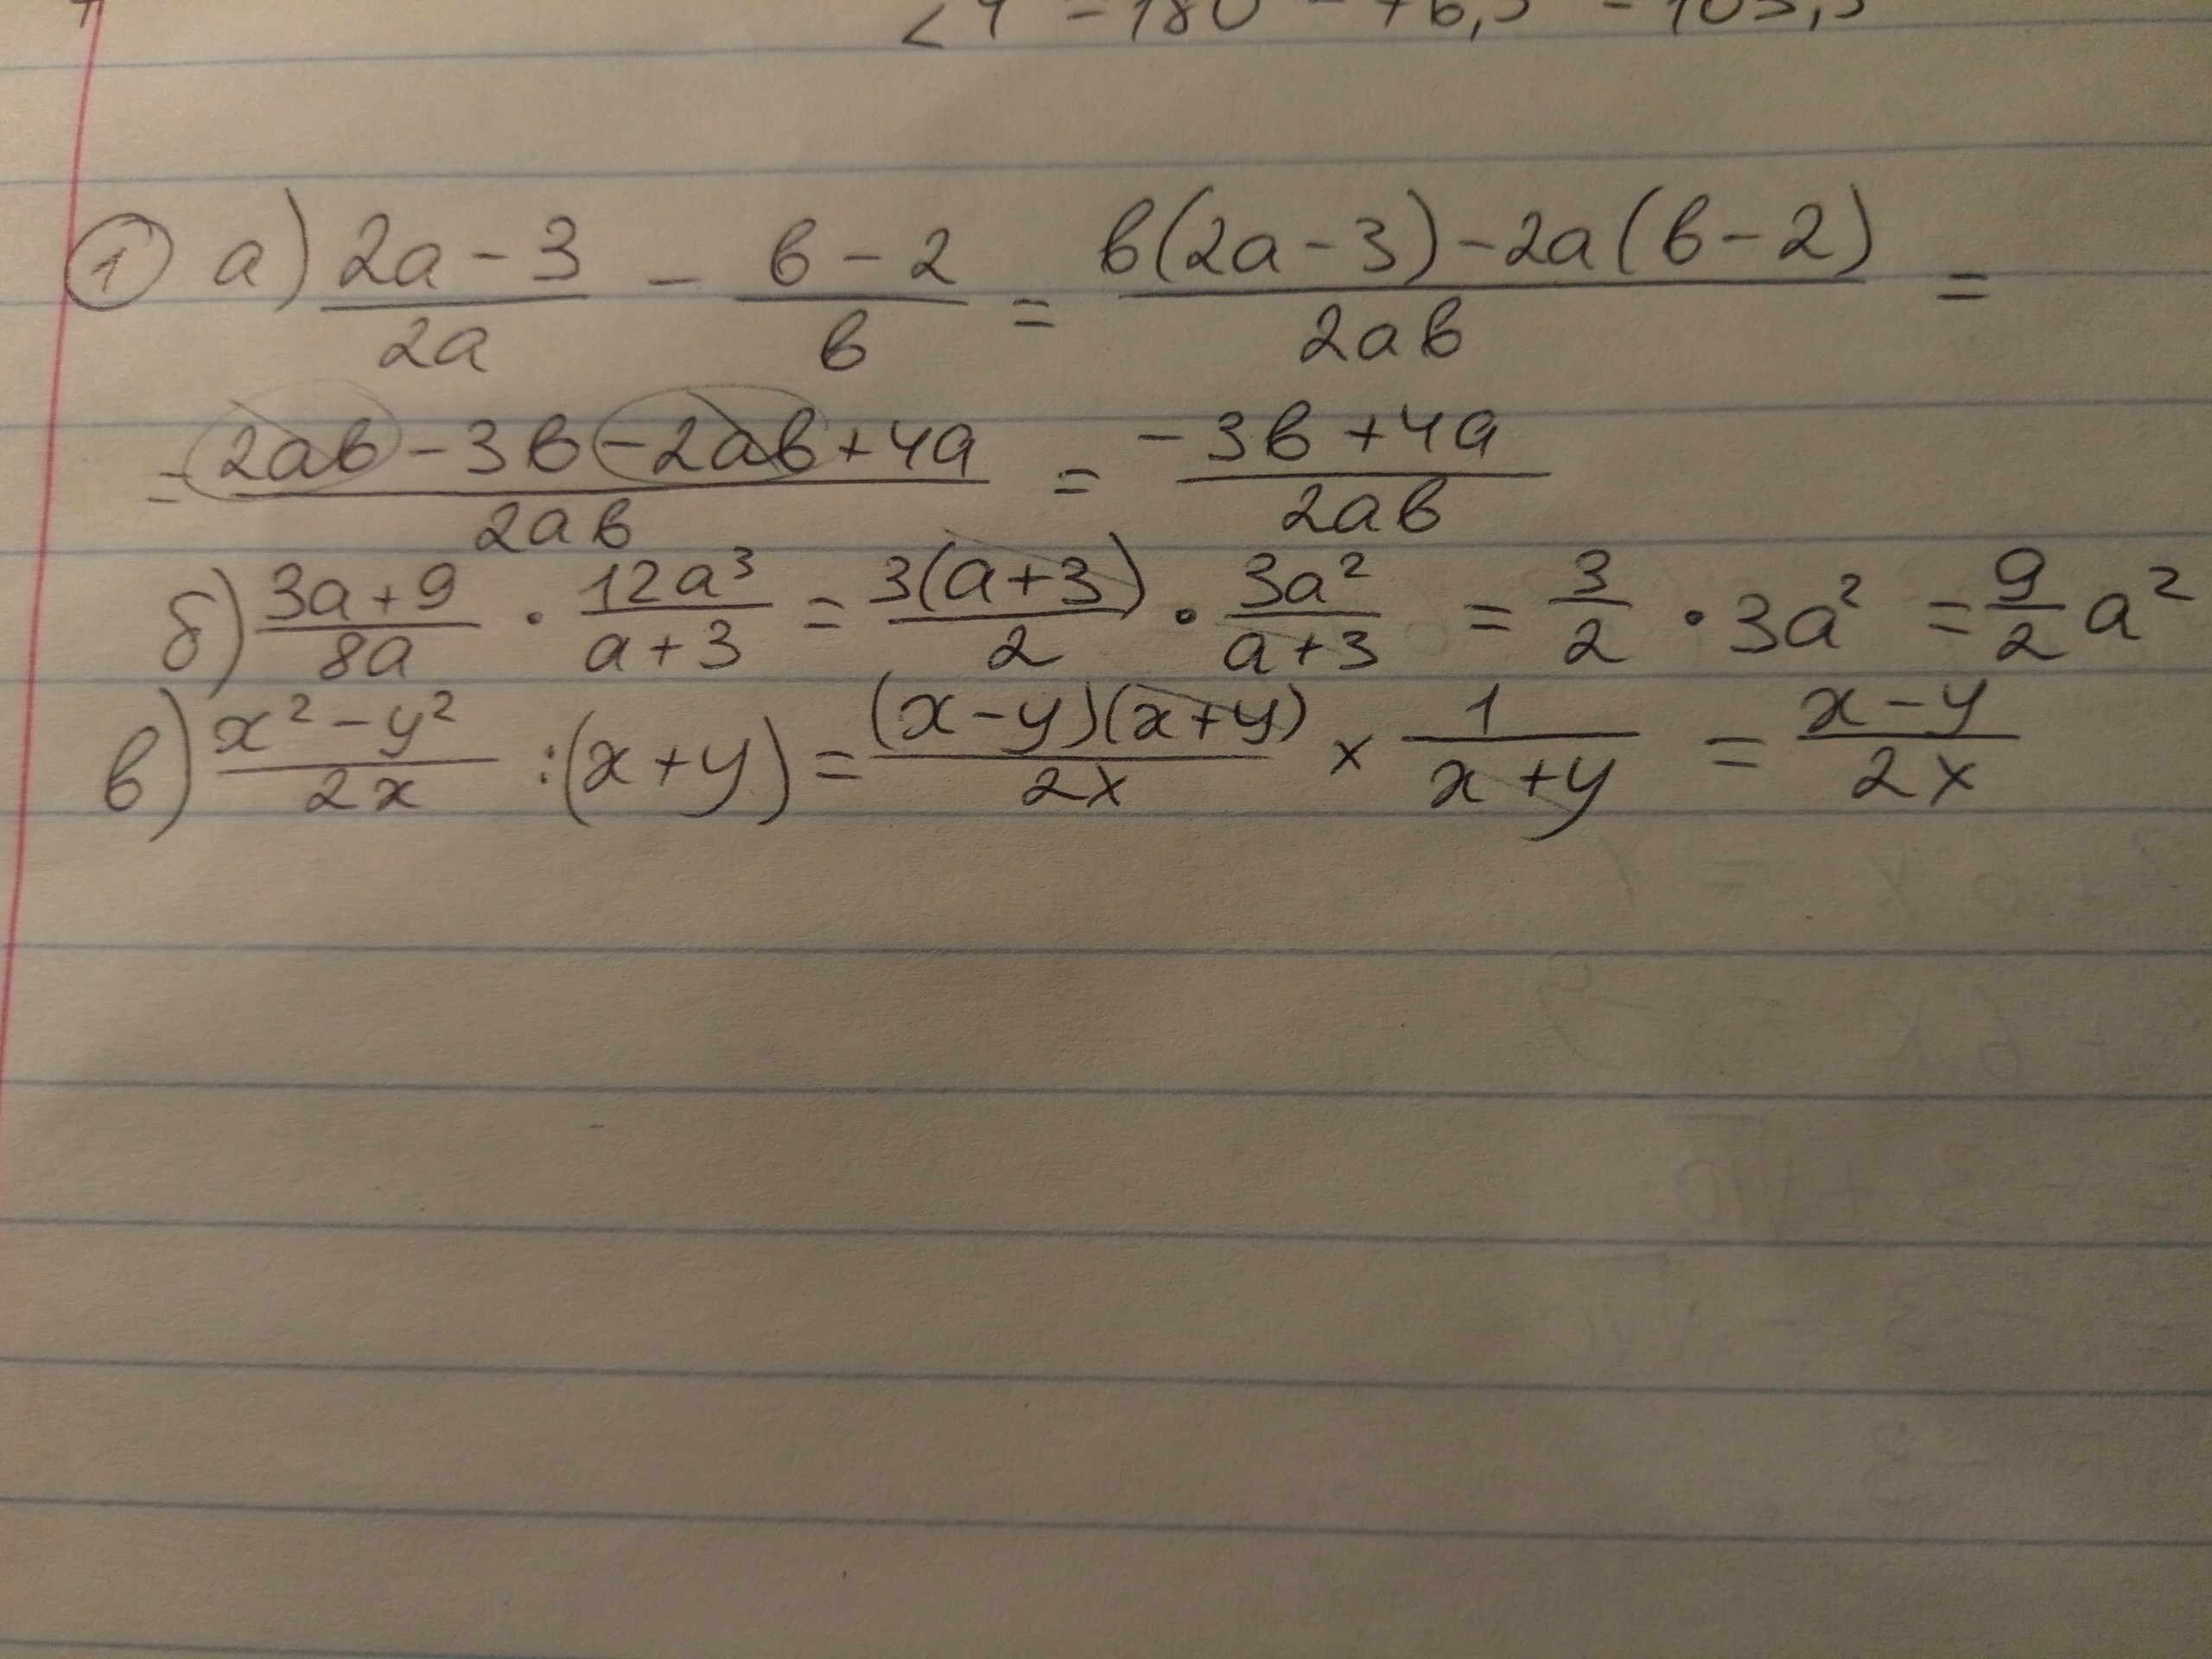 ① а) (2a - 3)/(2a) - (в - 2)/в = (в(2a - 3) - 2a(в - 2))/(2aв) =
= (2aв - 3в - 2aв + 4a)/(2aв) = (-3в + 4a)/(2aв)
б) (3a + 9)/(8a) · (12a³)/(a + 3) = (3(a + 3))/2 · (3a²)/(a + 3) = 3/2 · 3a² = 9/2 a²
в) (x² - y²)/(2x) : (x + y) = ((x - y)(x + y))/(2x) × 1/(x + y) = (x - y)/(2x)